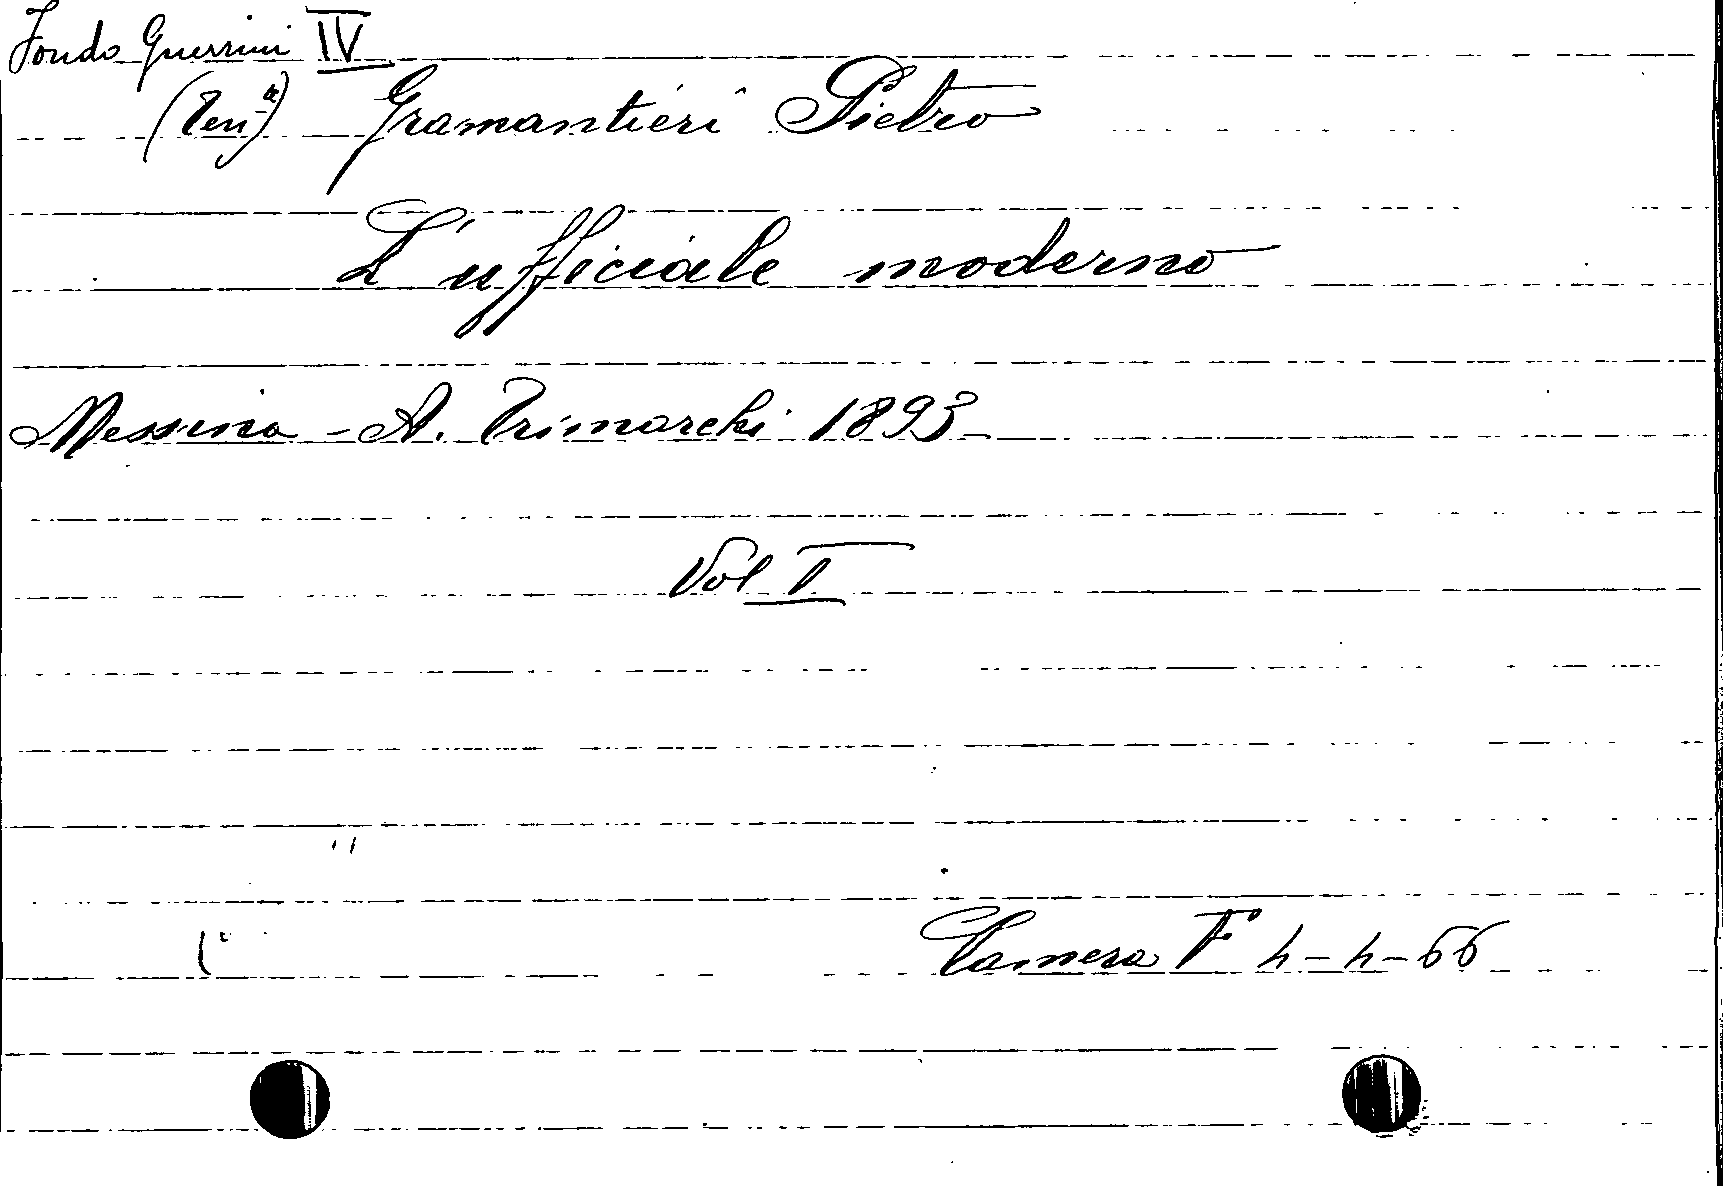 Fondo Guerrini IV
(Ten^te) Gramantieri Pietro
L'ufficiale moderno
Messina - A. Trimarchi 1893
Vol I
Camera F 4-4-66